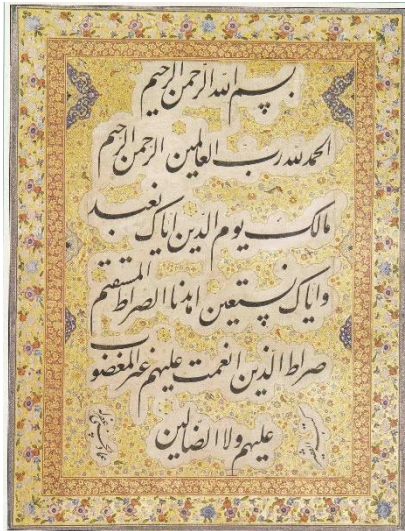 بسم الله الرحمن الرحيم
الحمد لله رب العالمين الرحمن الرحيم
مالك يوم الدين اياك نعبد
واياك نستعين اهدنا الصراط المستقيم
صراط الذين انعمت عليهم غير المغضوب
عليهم ولا الضالين